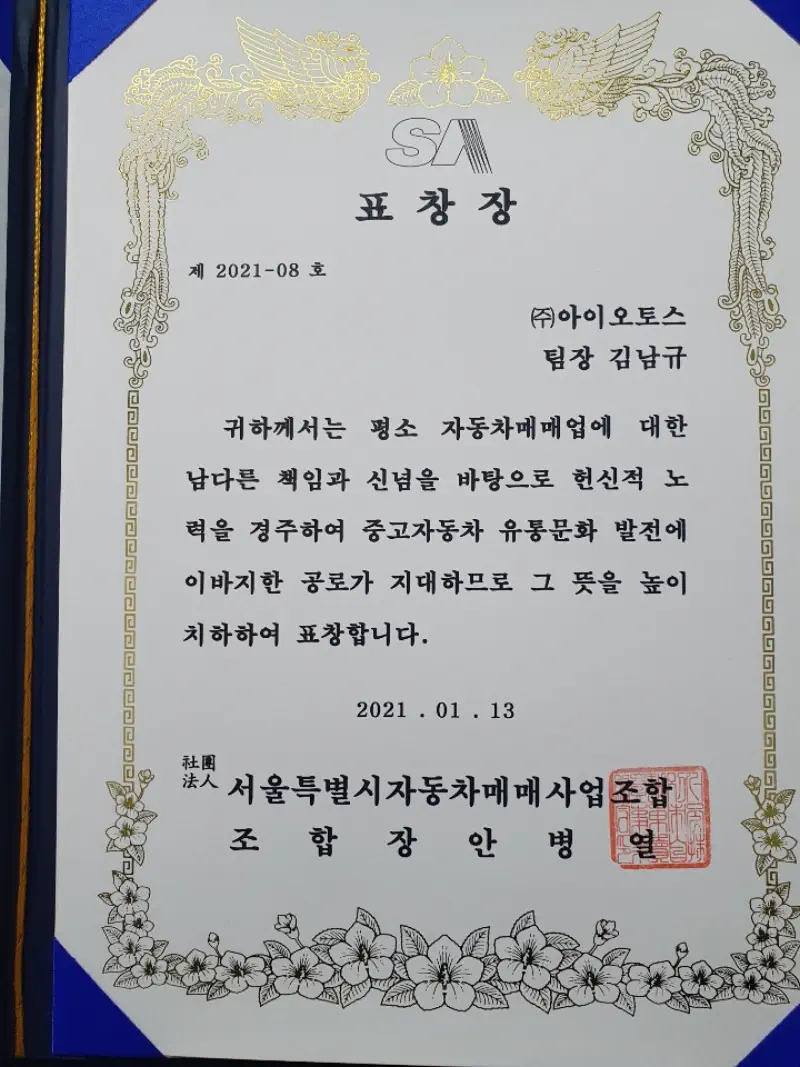 SA
표창장
제 2021-08 호
㈜아이오토스
팀장 김남규
귀하께서는 평소 자동차매매업에 대한
남다른 책임과 신념을 바탕으로 헌신적 노
력을 경주하여 중고자동차 유통문화 발전에
이바지한 공로가 지대하므로 그 뜻을 높이
치하하여 표창합니다.
2021 . 01 . 13
社團
法人 서울특별시자동차매매사업조합
조 합 장 안 병 열